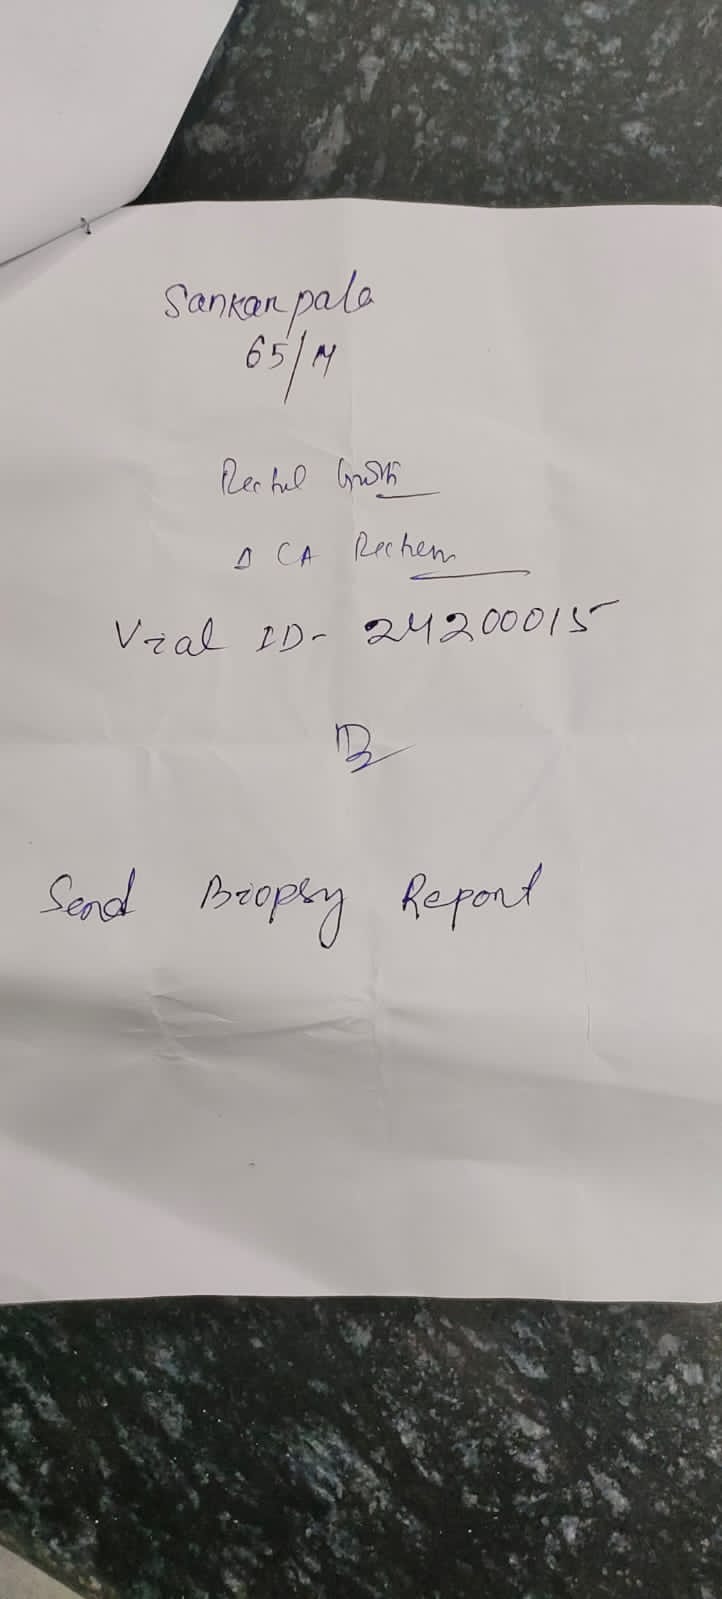 Sankar pala
65/M
Rectal Growth
Δ CA Rectum
Vial ID- 24200015
Send Biopsy Report